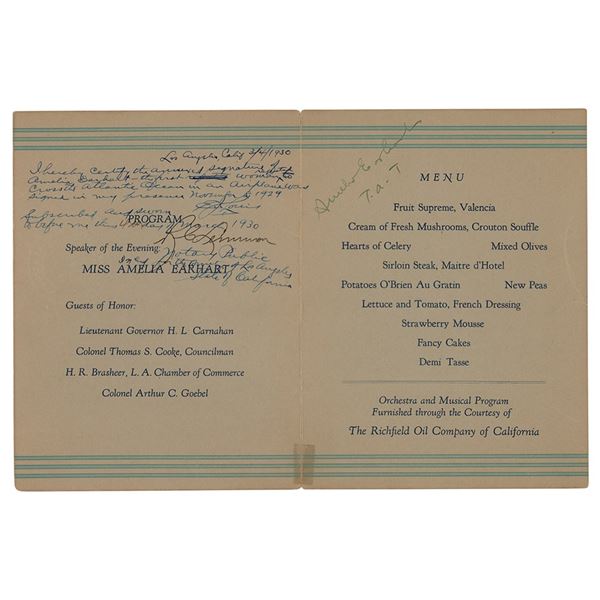 Los Angeles Calif 3/4/1930
I hereby certify the signature of
Amelia Earhart - the first woman to
Cross the Atlantic Ocean in an Airplane was
signed in my presence 1929
Subscribed and sworn
to before me this 1930
PROGRAM
Speaker of the Evening:
Notary Public
MISS AMELIA EARHART
Los Angeles
State of California
Guests of Honor:
Lieutenant Governor H. L. Carnahan
Colonel Thomas S. Cooke, Councilman
H. R. Brasheer, L. A. Chamber of Commerce
Colonel Arthur C. Goebel
Amelia Earhart
T.A.T
MENU
Fruit Supreme, Valencia
Cream of Fresh Mushrooms, Crouton Souffle
Hearts of Celery Mixed Olives
Sirloin Steak, Maitre d'Hotel
Potatoes O'Brien Au Gratin New Peas
Lettuce and Tomato, French Dressing
Strawberry Mousse
Fancy Cakes
Demi Tasse
Orchestra and Musical Program
Furnished through the Courtesy of
The Richfield Oil Company of California